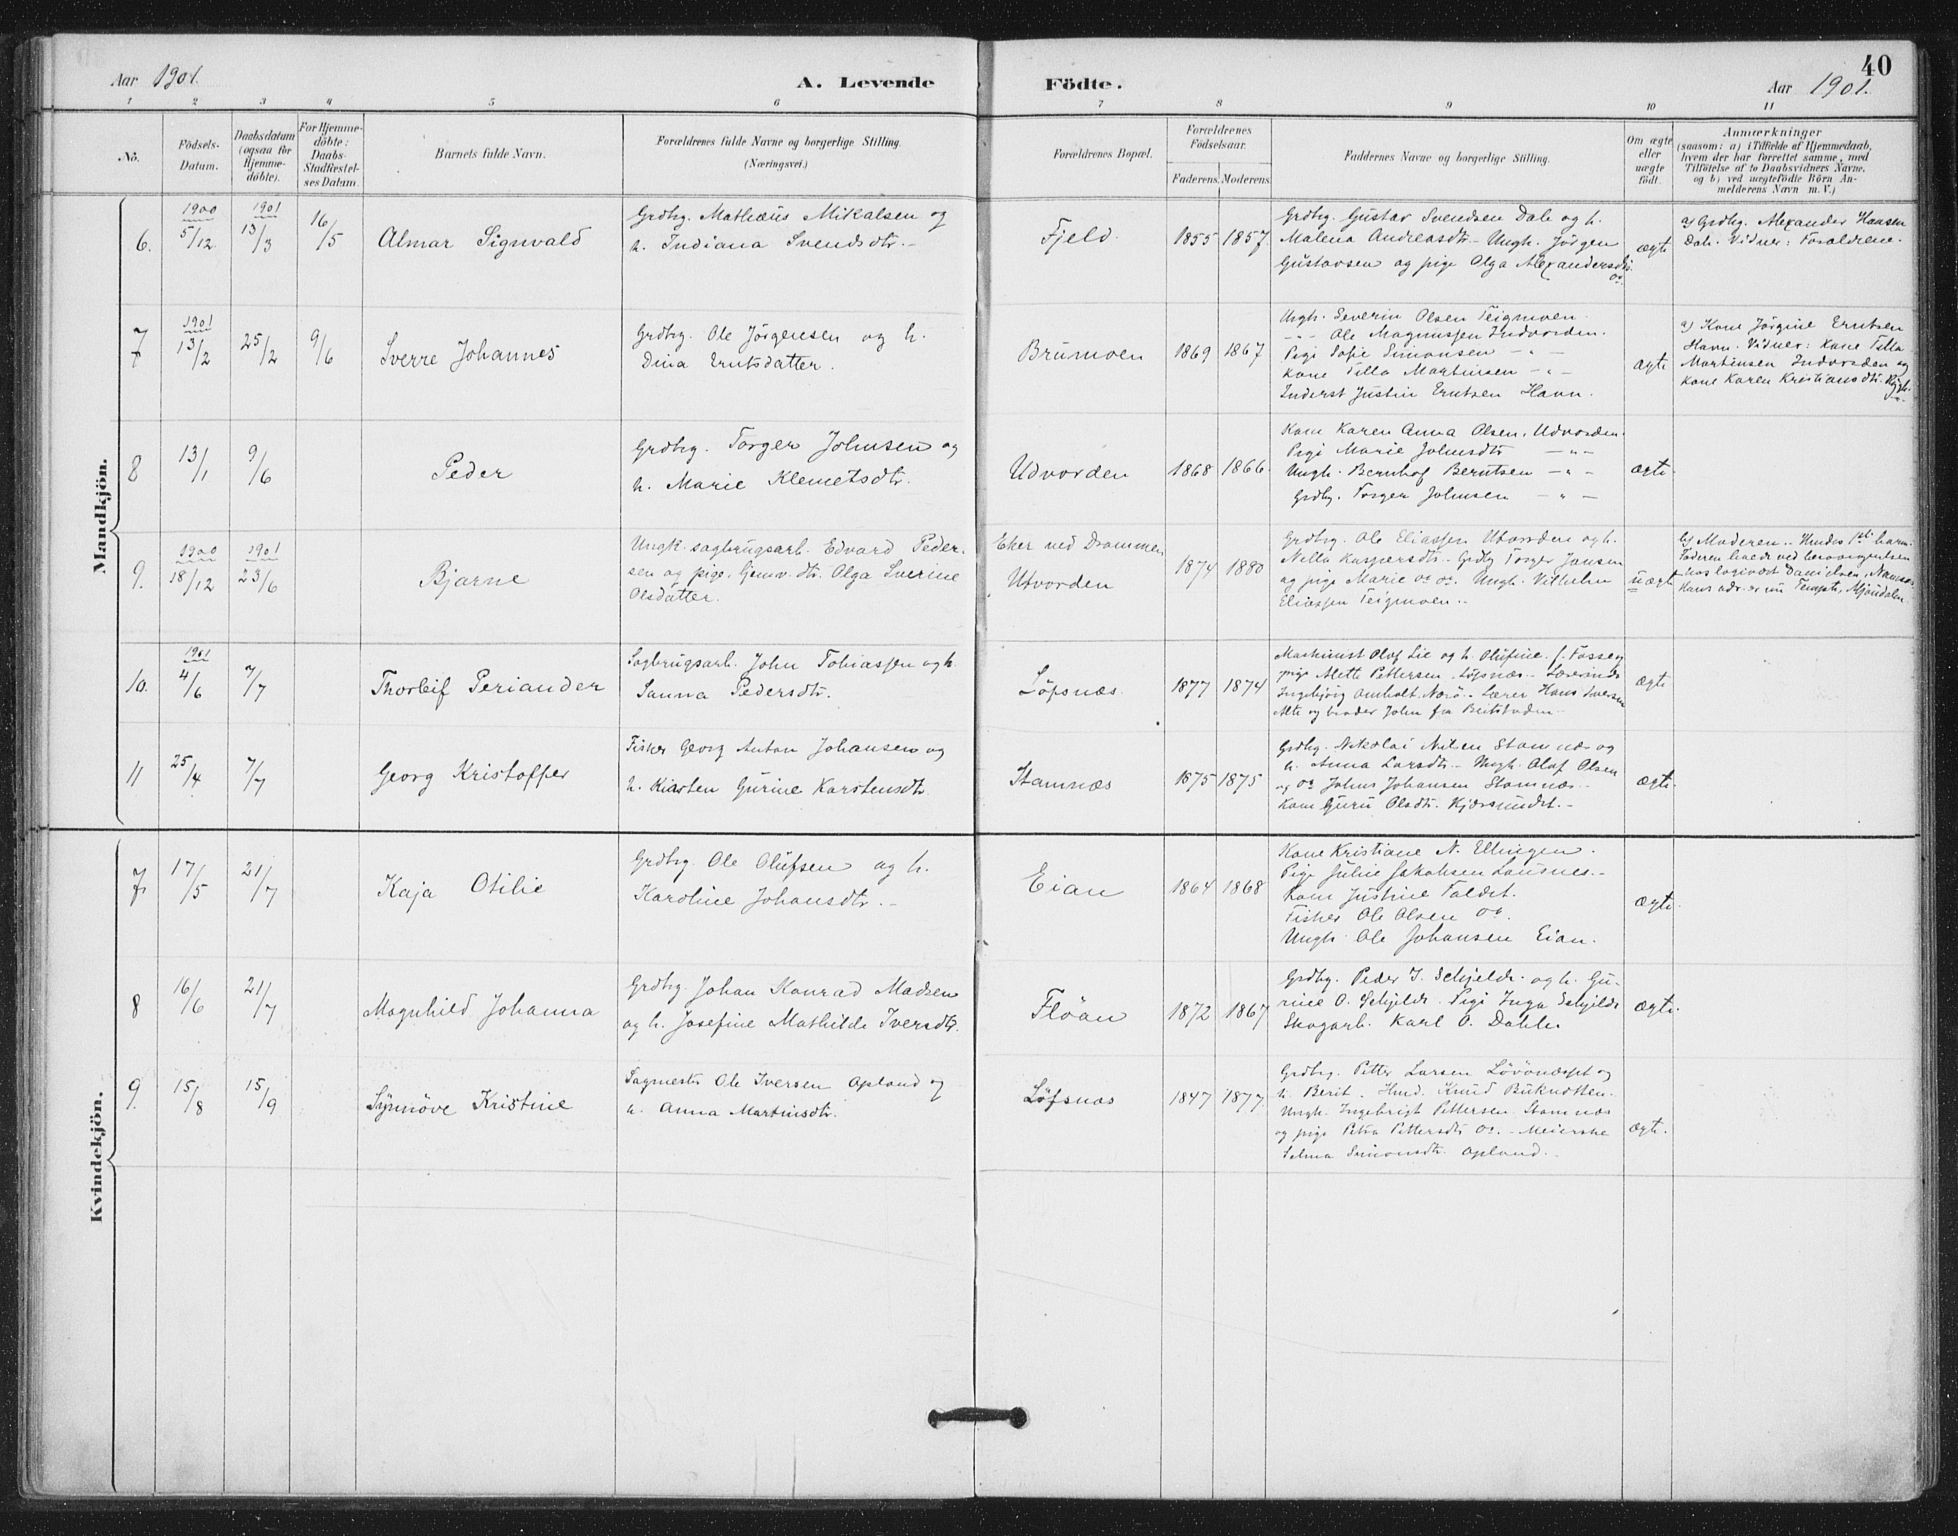 40
Aar 1901.
A. Levende
Födte.
Aar 1901.
1 2 3 4 5 6 7 8 9 10 11
No.
Födsels-
Datum.
Daabsdatum
(ogsaa for
Hjemme-
döbte).
For Hjemme-
döbte:
Daabs-
Stadfæstel-
ses Datum.
Barnets fulde Navn.
Forældrenes fulde Navne og borgerlige Stilling.
(Næringsvei.)
Forældrenes Bopæl.
Forældrenes
Födselsaar.
Faderens. Moderens.
Faddernes Navne og borgerlige Stilling.
Om ægte
eller
uægte
födt.
Anmærkninger
(saasom: a) i Tilfælde af Hjemmedaab,
hvem der har forrettet samme, med
Tilföielse af to Daabsvidners Navne,
og b) ved uægtefödte Börn An-
melderens Navn m. V.)
Mandkjön.
6.
1900
5/12
1901
13/3
16/5
Almar Signvald
Grdbg. Mathæus Mikalsen og
h. Indiana Svendsdtr.-
Fjeld.
1855 1857
Grdbg. Gustav Svendsen Dale og h.
Malena Andreasdtr.- Ungk. Jörgen
Gustavsen og pige Olga Alexandersdtr.
ægte
a) Grdbg. Alexander Hansen
Dale. Vidner: Foraldrene.
7
1901
13/2
25/2
9/6
Sverre Johannes
Grdbg. Ole Jörgensen og h.
Dina Erntsdatter.
Brumoen
1869 1867
Ungk. Severin Olsen Teigmoen.
-"- Ole Magnussen Indvorden.
Pige Sofie Simonsen -"-
Kone Tilla Martinsen -"-
Inderst Justin Erntsen Havn.
ægte
a) Kone Jörgine Erntsen
Havn. Vidner: Kone Tilla
Martinsen Indvorden og
Kone Karen Kristiansdtr.
8
13/1
9/6
Peder
Grdbg. Torger Johnsen og
h. Marie Klemetsdtr.
Udvorden
1868 1866
Kone Karen Anna Olsen, Udvorden.
Pige Marie Johnsdtr -"-
Ungk. Bernhof Berntsen -"-
Grdbg. Torger Johnsen -"-
ægte
9.
1900
18/12
1901
23/6
Bjarne
Ungk. sagbrugsarb. Edvard Peder-
sen og pige, Olga Sverine
Olsdatter.
Eker ved Drammen
Utvorden
1874 1880
Grdbg. Ole Eliassen Utvorden og h.
Nella Kaspersdtr. Grdbg Torger Jonsen
og pige Marie Ungk. Vilhelm
Eliassen Teigmoen..
uægte
b) Moderen.. Hendes 1ste barn.
Danielsen, Namsos
Hans adr. er nu Mjöndalen.
10.
1901
4/6
7/7
Thorleif Periander
Sagbrugsarb. John Tobiassen og h.
Sanna Pedersdtr.
Löfsnæs.
1877 1874
Maskinist Olaf Lie og h. Olufine
pige Alette Pettersen Löpsnæs.
Lærer Hans Iversen
Alte og broder John fra Beitstaden.
ægte
11
25/4
7/7
Georg Kristoffer
Fisker Georg Anton Johansen og
h. Kirsten Gurine Karstensdtr
Stamnæs
1875 1875
Grdbg. Nikolai Nilsen Stamnæs og
h. Anna Larsdtr.- Ungk. Olaf Olsen
og Johns Johansen Stamnæs.
Kone Guru Olsdtr. Kjærsundet.-
ægte.
Kvindekjön.
7
17/5
21/7
Kaja Otilie
Grdbg. Ole Olufsen og h.
Karoline Johansdtr.-
Eian
1864 1868
Kone Kristiane N. Ellingen.
Pige Juline Jakobsen Lausnes.-
Kone Justine Faldet.
Fisker Ole Olsen
Ungk. Ole Johansen Eian.
ægte.
8
16/6
21/7
Magnhild Johanna
Grdbg. Johan Konrad Madsen
og h. Josefine Mathilde Iversdtr.
Flöan
1872 1867
Grdbg. Peder I. Sehjelde og h. Gu-
rine O. Sehjelde. Pige Inga Sehjelde
Skogarb. Karl O. Dahle.
ægte.
9.
15/8
15/9
Synnöve Kristine
Sagmester Ole Iversen Opland og
h. Anna Martinsdtr.
Löfsnæs
1847 1877
Grdbg. Petter Larsen og
h. Berit. Knud
Ungk. Ingebrigt Pettersen Stamnæs
og pige Petra Pettersdtr Meierske
Selma Simonsdtr. Opland.-
ægte.